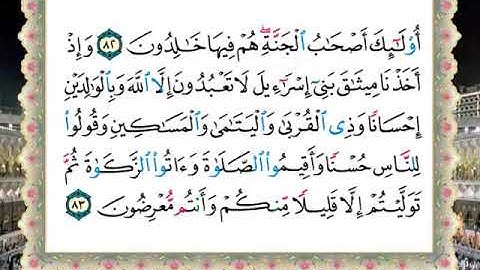 أُوْلَـٰٓئِكَ أَصْحَـٰبُ الْجَنَّةِ ۖ هُمْ فِيهَا خَـٰلِدُونَ ٨٢ وَإِذْ
أَخَذْنَا مِيثَـٰقَ بَنِىٓ إِسْرَٰٓءِيلَ لَا تَعْبُدُونَ إِلَّا اللَّهَ وَبِالْوَٰلِدَيْنِ
إِحْسَانًا وَذِى الْقُرْبَىٰ وَالْيَتَـٰمَىٰ وَالْمَسَـٰكِينِ وَقُولُوا
لِلنَّاسِ حُسْنًا وَأَقِيمُوا الصَّلَوٰةَ وَءَاتُوا الزَّكَوٰةَ ثُمَّ
تَوَلَّيْتُمْ إِلَّا قَلِيلًا مِّنكُمْ وَأَنتُم مُّعْرِضُونَ ٨٣